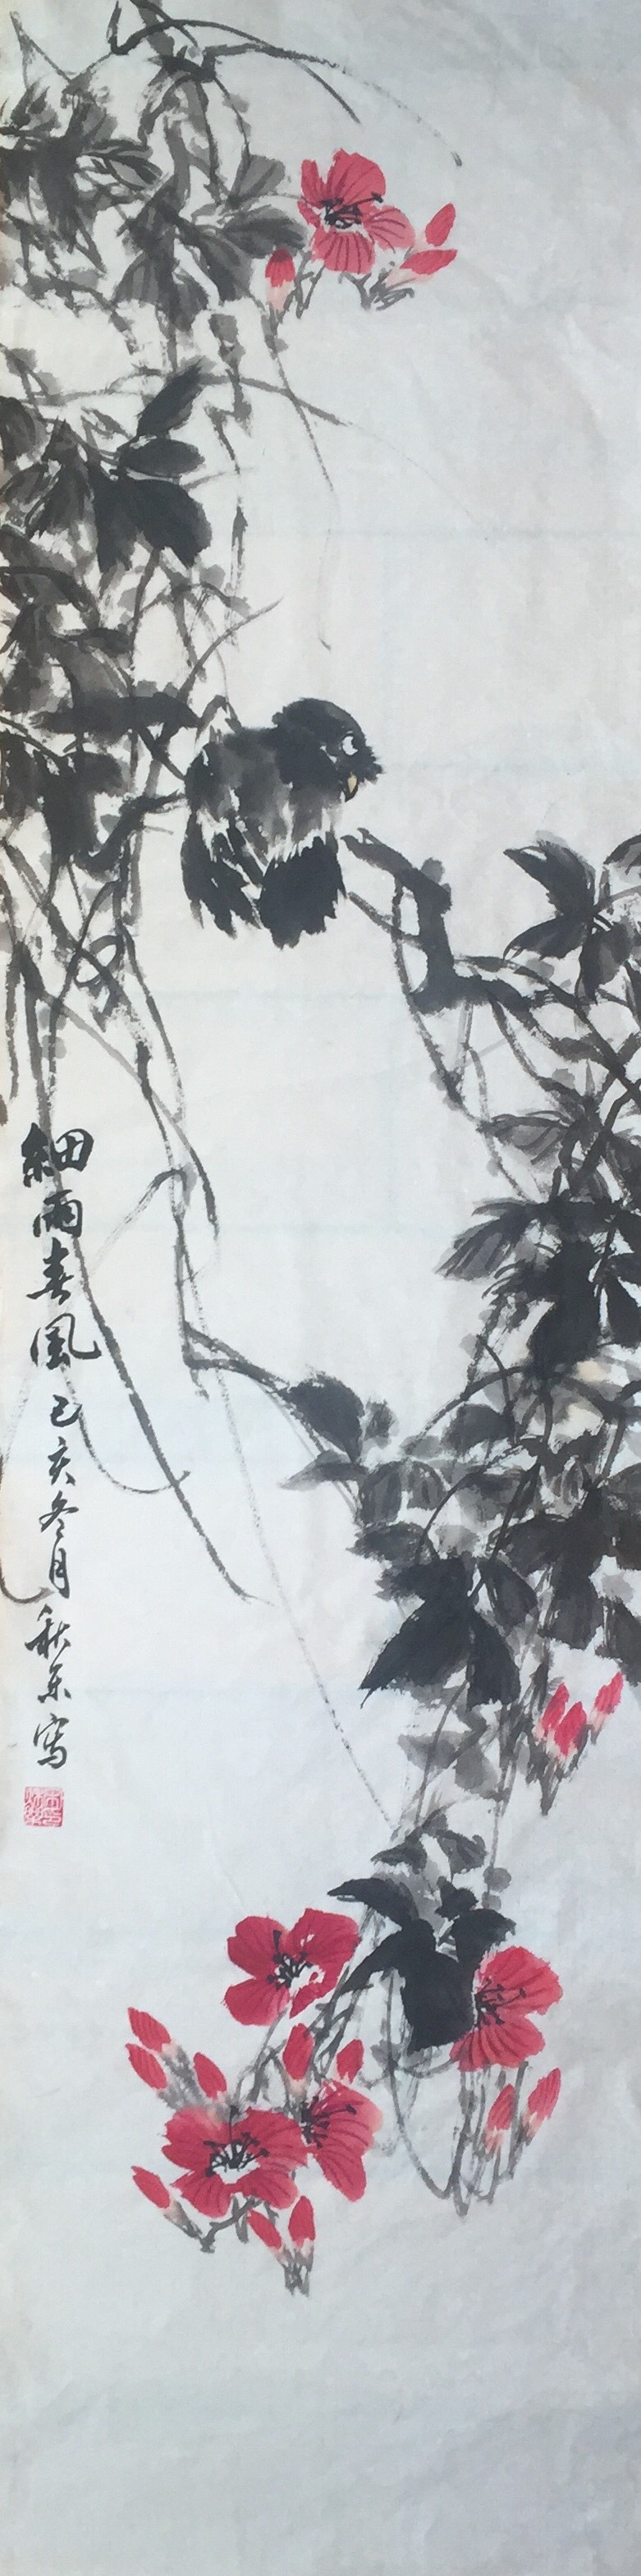 細雨春風 己亥冬月 秋东寫